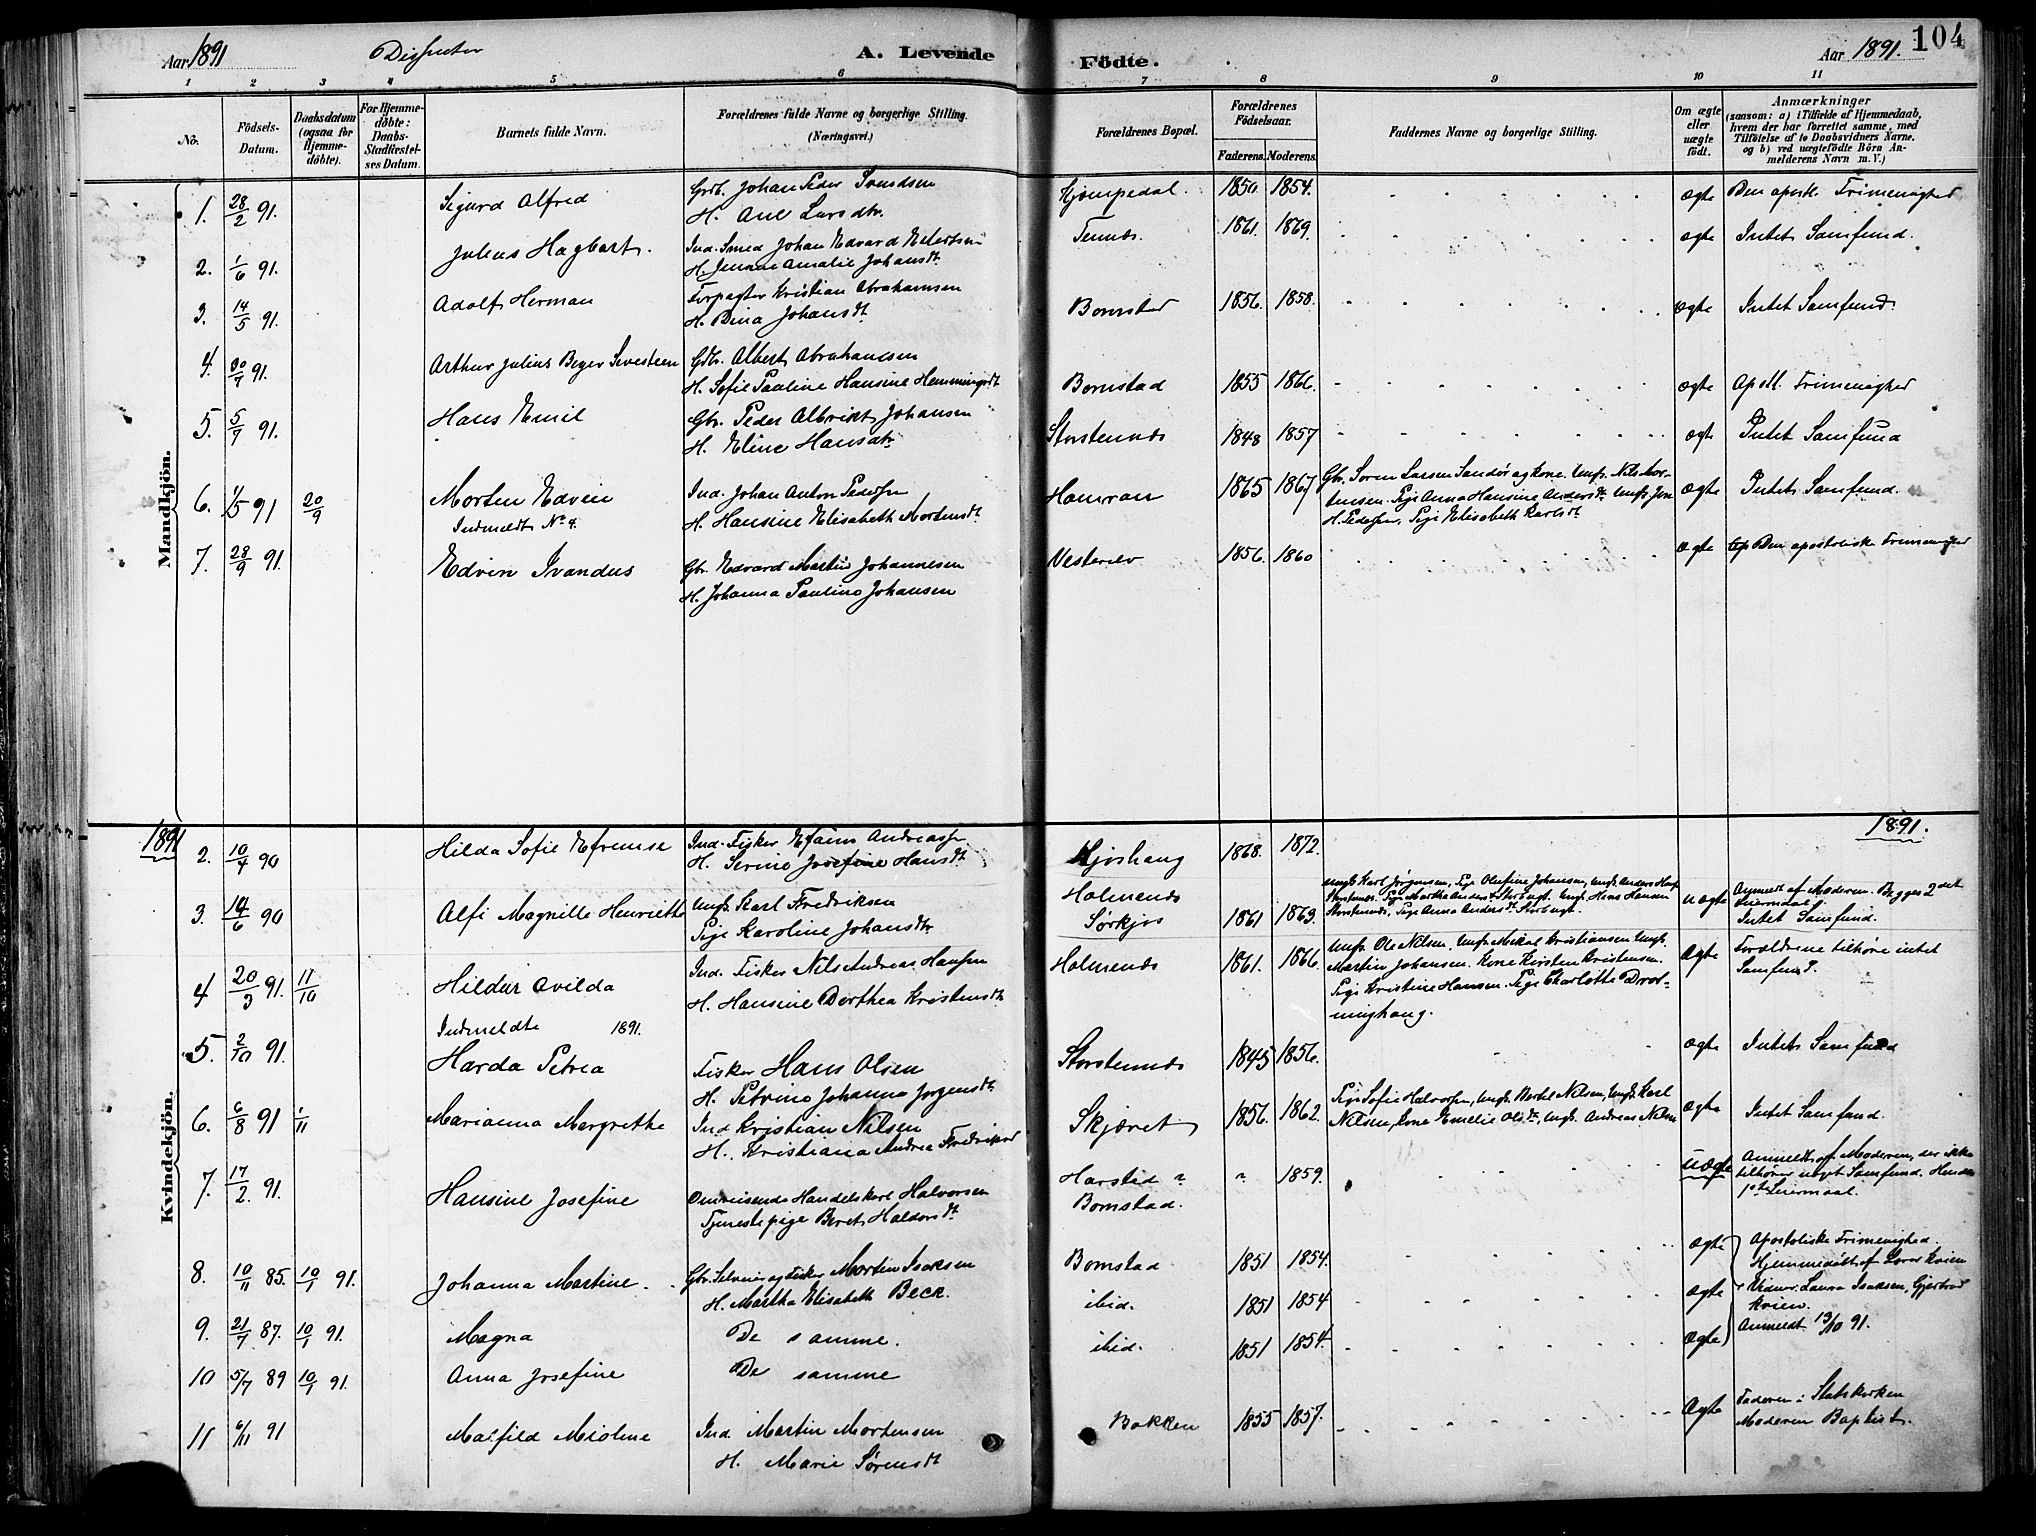 Aar 1891 Dissenter A. Levende Födte. Aar 1891. 104
1 2 3 4 5 6 7 8 9 10 11
No.
Födsels-Datum.
Daabsdatum (ogsaa for Hjemme-döbte).
For Hjemme-döbte: Daabs-Stadfæstel-ses Datum.
Barnets fulde Navn.
Forældrenes fulde Navne og borgerlige Stilling. (Næringsvei.)
Forældrenes Bopæl.
Forældrenes Födselsaar.
Faderens. Moderens.
Faddernes Navne og borgerlige Stilling.
Om ægte eller uægte födt.
Anmærkninger
(saasom: a) i Tilfælde af Hjemmedaab, hvem der har forrettet samme, med Tilföielse af to Daabsvidners Navne. og b) ved uægtefödte Börn An-melderens Navn m. V.)
Mandkjön.
1. 28/2 91. Sigurd Alfred Grdb. Johan Peder Svendsen Hjempedal. 1850 1854. ægte Den apost. Frimenighed
H. Ane Larsdtr.
2. 1/6 91. Julius Hagbart. Ind. Smed Johan Edvard Eilertsen Tennes. 1861. 1869. ægte Intet Samfund.
H. Jensine Amalie Johansdt.
3. 14/5 91. Adolf Herman Forpagter Kristian Abrahamsen Bomstad 1856. 1858. ægte Intet Samfund.
H. Dina Johansdt.
4. 30/7 91. Arthur Julius Beyer Sivesteen Gdbr. Albert Abrahamsen
H. Sofie Pauline Hansine Hemmingsdt Bomstad 1855 1866. ægte Apost. Frimenighed
5. 5/7 91. Hans Emil Gbr. Peder Albrikt Johansen
H. Eline Hansdtr Storstennes 1848 1857 ægte Intet Samfund
6. 4/5 91 20/9 Morten Edvin Ind. Johan Anton Pedersen Hamran 1865 1867 Gbr. Søren Larsen Sandør og kone. Ungk. Nils Mor-
tensen. Pige Anna Hansine Andersdt. Ungk. Jon ægte Intet Samfund.
Indmeldt No 4. H. Hansine Elisabeth Mortensdt. H. Pedersen, Pige Elisabeth Karlsdt
7. 28/9 91. Edvin Ivandus Gbr. Edvard Martin Johannesen Vesterelv 1856. 1860 ægte Den apostoliske Frimenighed
H. Johanna Pauline Johansen
1891 1891.
Kvindekjön.
2. 10/4 90 Hilda Sofie Efremse Ind. Fisker Efraim Andreassen
H. Serine Josefine Hansdt Kjoshaug 1868. 1872.
3. 14/6 90 Alfi Magnille Henriette Ungk. Karl Fredriksen
Pige Karoline Johansdtr Holmenes
Sørkjos 1861 1863. Ungk. Karl Jørgensen, Pige Olufine Johansen, Ungk. Anders Hans
Storstennes. Pige Martha Andersdt. Storbugt. Ungk. Hans Hansen
Storstennes, Pige Anna Andersdt. Storbugt. uægte Anmeldt af Moderen. Begges 2det
Leiermaal.
Intet Samfund.
4 20/3 91. 11/10 Hildur Ovilda Ind. Fisker Nils Andreas Hansen
H. Hansine Dorthea Kristensdt Holmenes 1861. 1866. Ungk. Ole Nilsen. Ungk. Mikal Kristiansen Ungk.
Martin Johansen. Kone Kirsten Kristensen.
Pige Kristine Hansen. Pige Charlotte Dron-
ninghaug. ægte Forældrene tilhøre intet
Samfund.
Indmeldte 1891.
5. 2/10 91. Harda Petrea Fisker Hans Olsen
H. Petrine Johanna Jørgensdt. Storstennes 1845 1856. ægte Intet Samfund
6. 6/8 91 1/11 Marianna Margrethe Ind Kristian Nilsen
H. Kristiana Andrea Fredriksd Skjæret 1856. 1862. Pige Sofie Halvorsen, Ungk. Bertel Nilsen, Ungk. Karl
Nilsen, Kone Emelie Olsdt., Ungk. Andreas Nilsen ægte Intet Samfund.
7. 17/2 91. Hansine Josefine Omreisende Handelskarl Halvorsen
Tjenestepige Beret Haldorsdt. Harstad
Bomstad. " 1859. uægte Anmeldt af Moderen, der ikke
tilhører noget Samfund. Hendes
1ste Leiermaal.
8. 10/11 85. 10/1 91. Johanna Martine. Gbr. Selveier og Fisker Morten Isaksen
H. Martha Elisabeth Beck. Bomstad 1851 1854. ægte Apostoliske Frimenighed.
Hjemmedøbt af Lorer Kvien
9. 21/7 87. 10/1 91. Magna De samme. ibid. 1851 1854 ægte Vidner: Laura Isaksen, Gjertrud
Kvien.
10 5/7 89 10/1 91. Anna Josefine De samme ibid. 1851 1854. ægte Anmeldt 13/10 91.
11 6/11 91 Malfild Miolme Ind Martin Mortensen
H. Marie Sørensdt Bakken 1855 1857. ægte Faderen i Statskirken
Moderen Baptist.